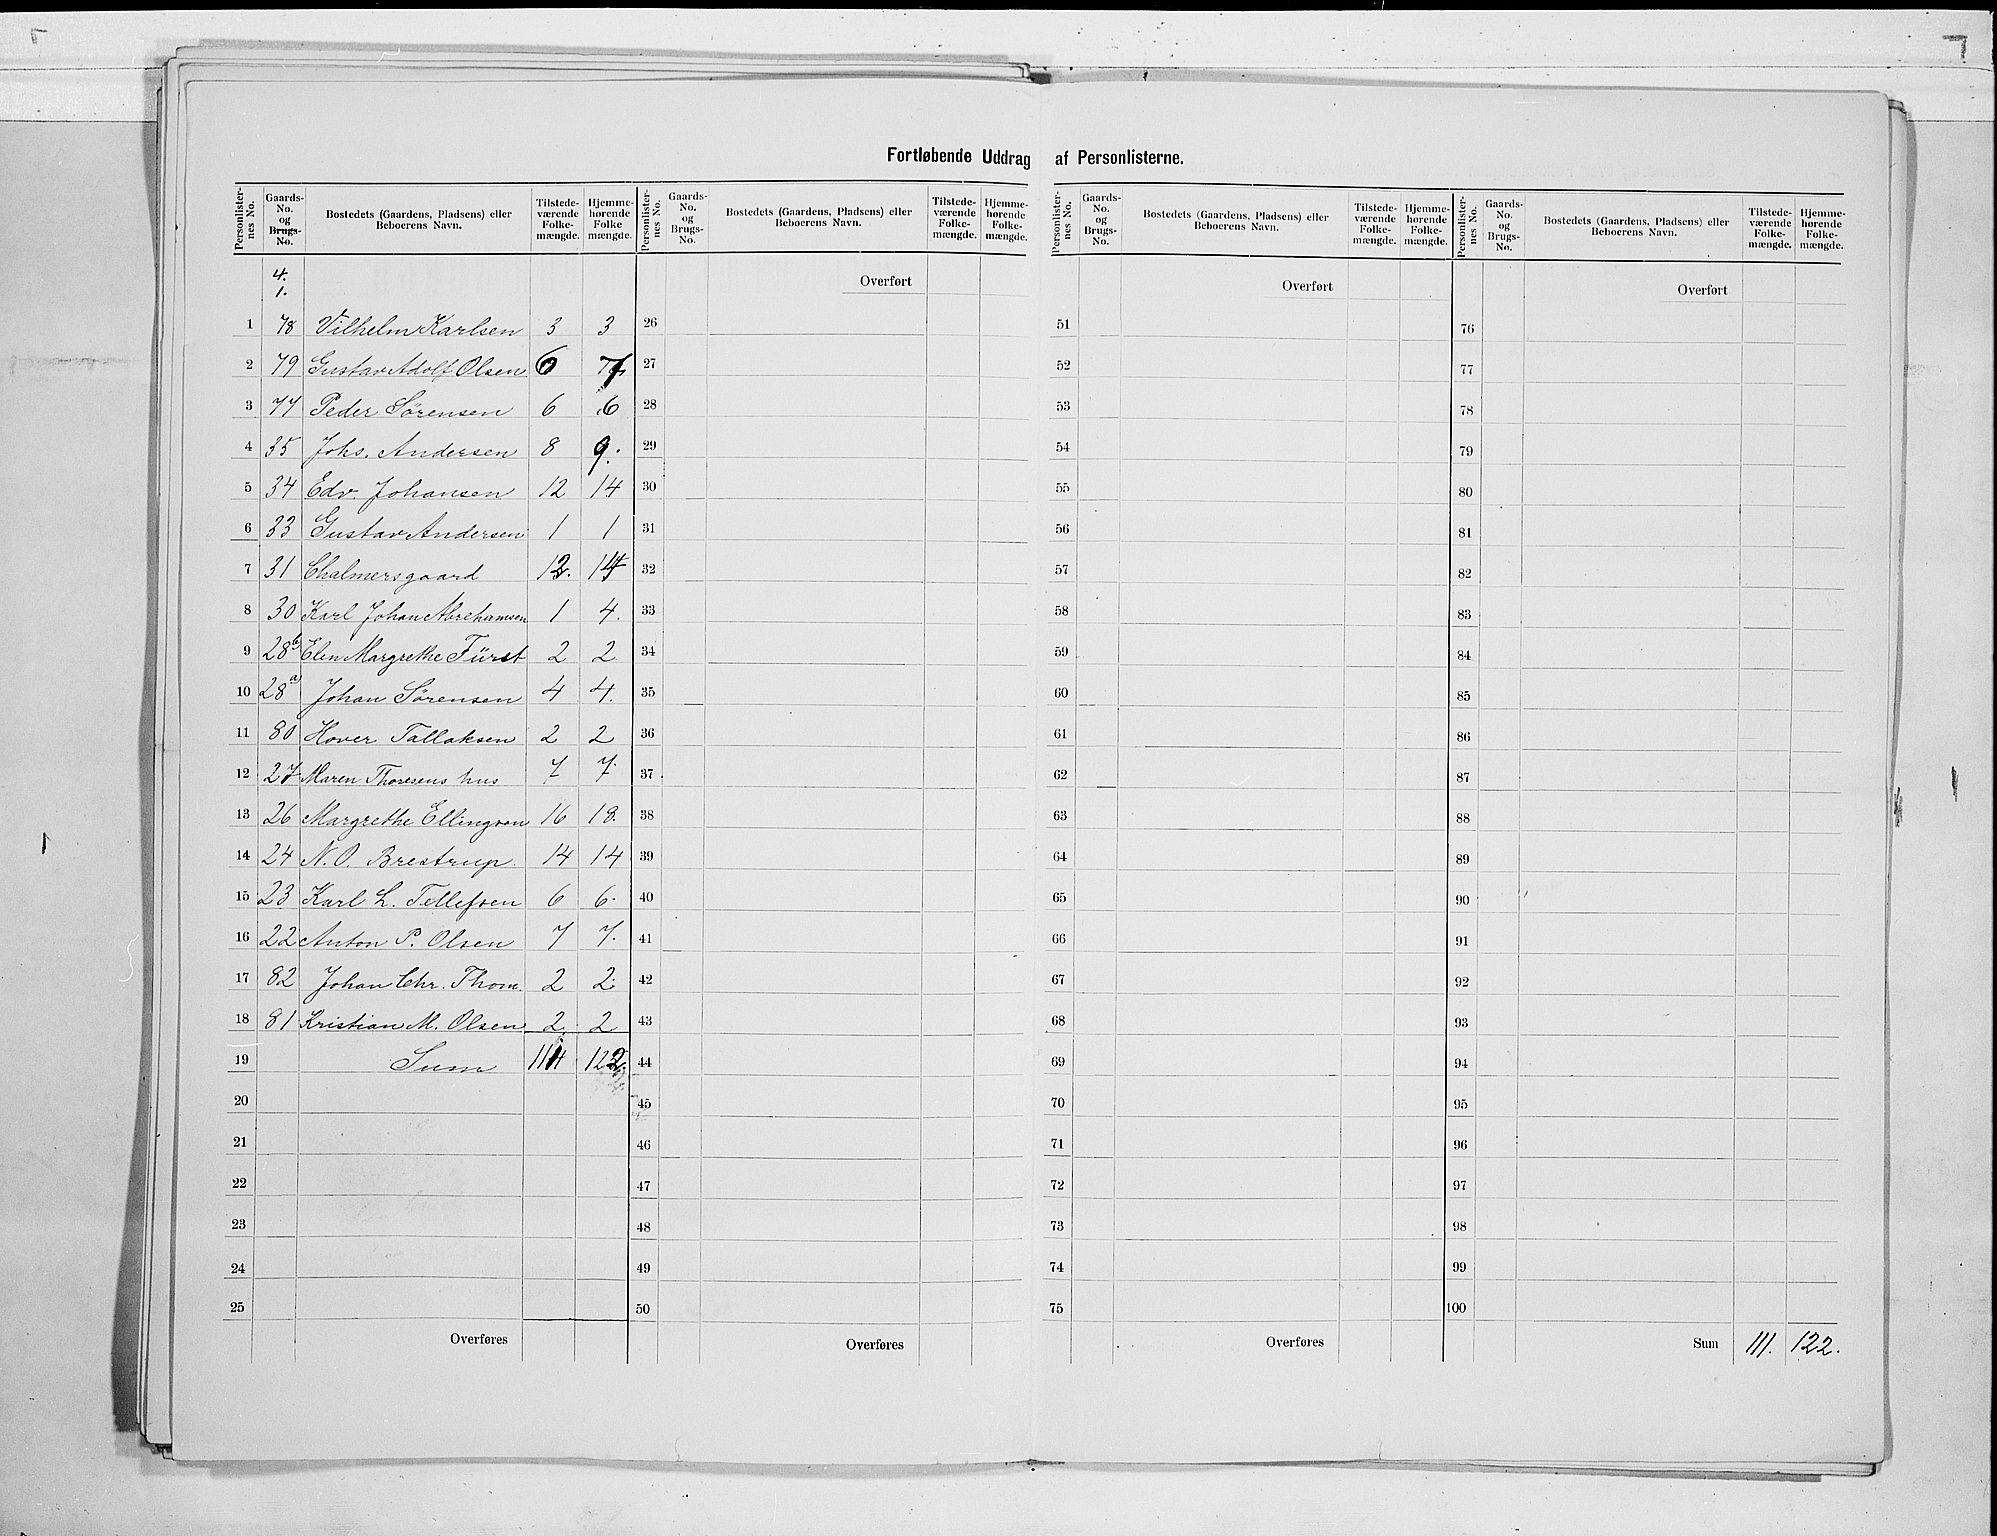 Fortløbende Uddrag af Personlisterne.
Personlisternes No. Gaards-No. og Brugs-No. Bostedets (Gaardens, Pladsens) eller Beboerens Navn. Tilstedeværende Folkemængde. Hjemmehørende Folkemængde.
Personlisternes No. Gaards-No. og Brugs-No. Bostedets (Gaardens, Pladsens) eller Beboerens Navn. Tilstedeværende Folkemængde. Hjemmehørende Folkemængde.
Personlisternes No. Gaards-No. og Brugs-No. Bostedets (Gaardens, Pladsens) eller Beboerens Navn. Tilstedeværende Folkemængde. Hjemmehørende Folkemængde.
Personlisternes No. Gaards-No. og Brugs-No. Bostedets (Gaardens, Pladsens) eller Beboerens Navn. Tilstedeværende Folkemængde. Hjemmehørende Folkemængde.
4.
1.
Overført Overført Overført
1 78 Vilhelm Karlsen 3 3 26 51 76
2 79 Gustav Adolf Olsen 6 7 27 52 77
3 77 Peder Sørensen 6 6 28 53 78
4 35 Johs. Andersen 8 9. 29 54 79
5 34 Edv. Johansen 12 14 30 55 80
6 33 Gustav Andersen 1 1 31 56 81
7 31 Chalmersgaard 12. 14 32 57 82
8 30 Karl Johan Abrehamsen 1 4. 33 58 83
9 28b Elen Margrethe Fürst 2 2 34 59 84
10 28a Johan Sørensen 4 4. 35 60 85
11 80 Hover Tallaksen 2 2 36 61 86
12 27 Maren Thoresens hus 7 7. 37 62 87
13 26 Margrethe Ellingsen 16 18. 38 63 88
14 24 N. O. Brestrup. 14 14 39 64 89
15 23 Karl L. Tellefsen 6 6. 40 65 90
16 22 Anton P. Olsen 7 7. 41 66 91
17 82 Johan Chr. Thom. 2 2. 42 67 92
18 81 Kristian M. Olsen 2. 2 43 68 93
19 Sum 111 122. 44 69 94
20 45 70 95
21 46 71 96
22 47 72 97
23 48 73 98
24 49 74 99
25 50 75 100
Overføres Overføres Overføres Sum 111. 122.